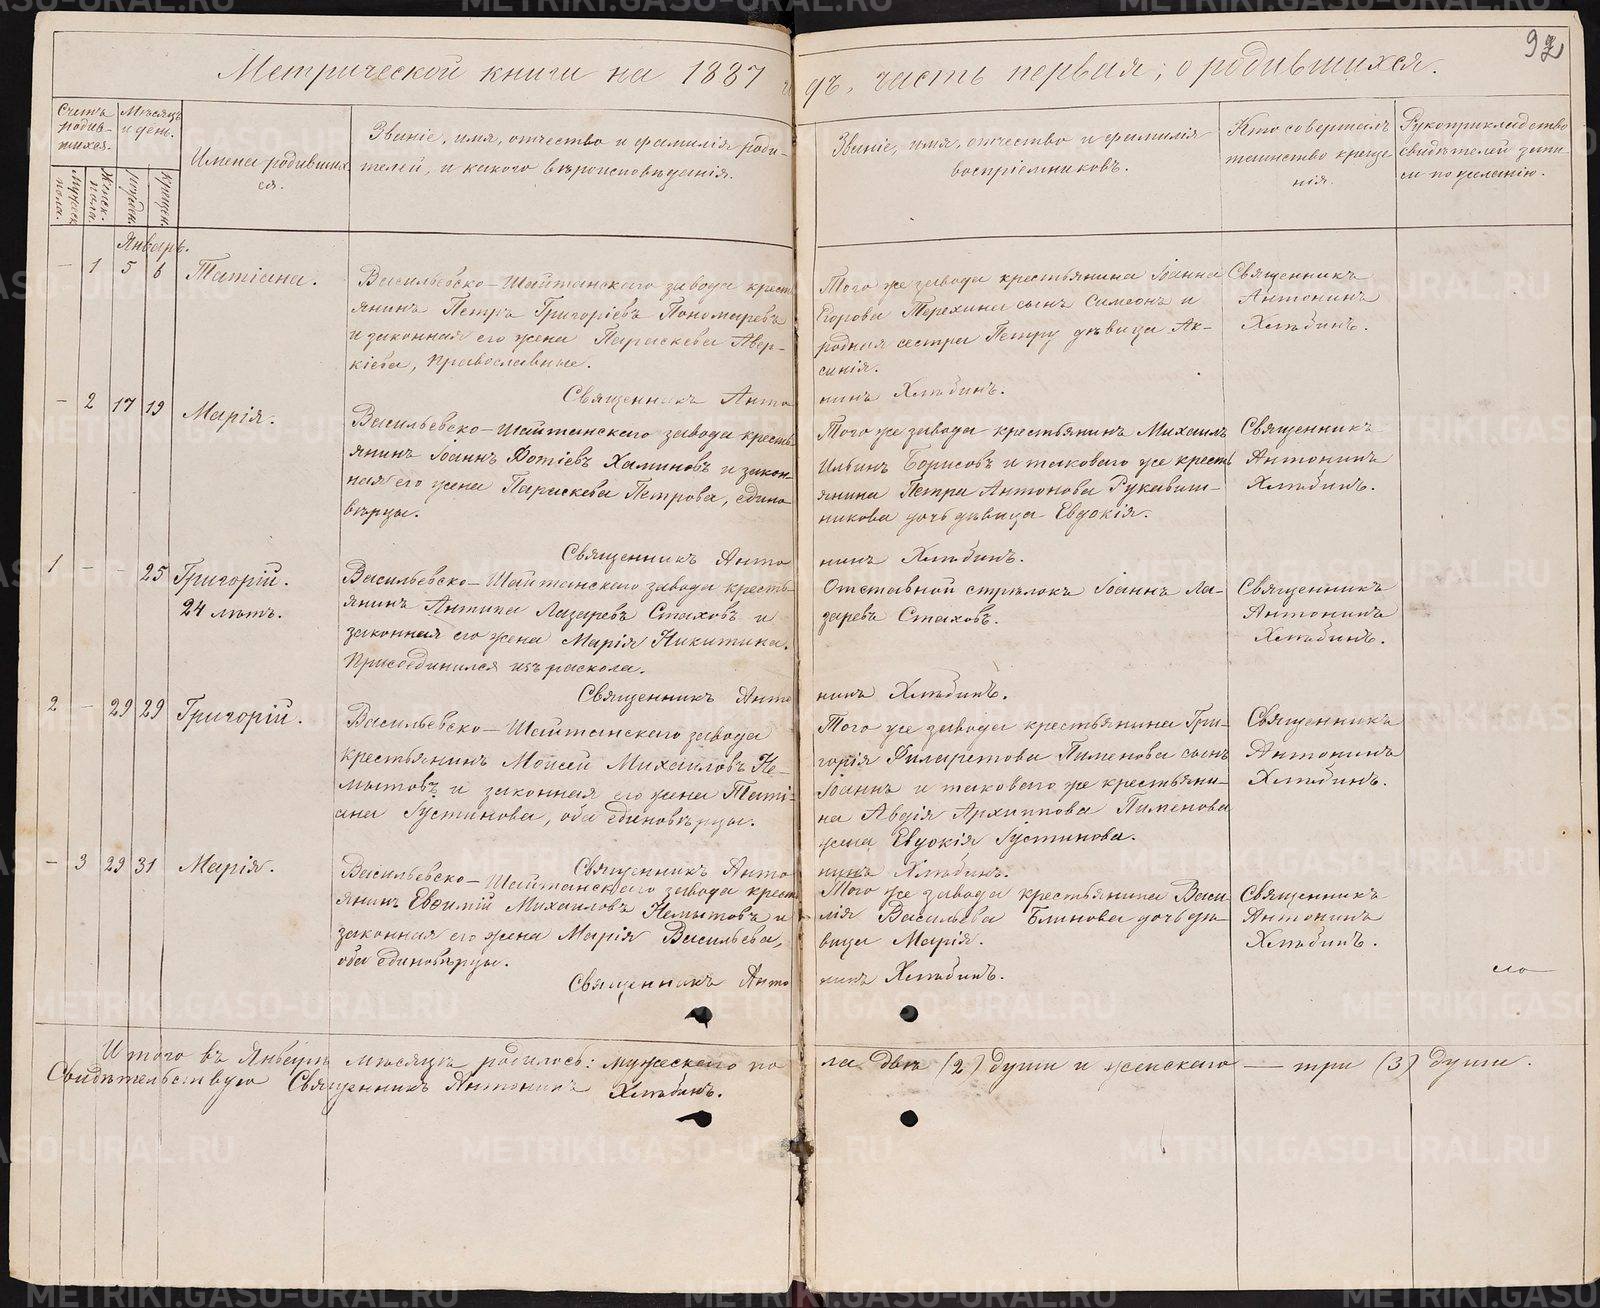 92
Метрической книги на 1887 годъ, часть первая, о родившихся.
Счетъ родив-шихся.
Мужеск. пола.
Женск. пола.
Мѣсяцъ и день.
рожден.
крещен.
Имена родившихся.
Званіе, имя, отчество и фамилія роди-
телей, и какого вѣроисповѣданія.
Званіе, имя, отчество и фамилія
воспріемниковъ.
Кто совершалъ
таинство креще
нія.
Рукоприкладство
свидѣтелей запи
си по желанію.
Январь.
— 1 5 6 Татіана.
Васильевско-Шайтанскаго завода крест
янинъ Петръ Григоріевъ Пономаревъ
и законная его жена Параскева Авер-
кіева, православные.
Того же завода крестьянина Іоанна
Егорова Терехина сынъ Симеонъ и
родная сестра Петру дѣвица Ак-
синія.
Священникъ
Антонинъ
Хлѣбинъ.
Священникъ Анто
нинъ Хлѣбинъ.
— 2 17 19 Марія.
Васильевско-Шайтанскаго завода кресть
янинъ Іоаннъ Фотіевъ Халиновъ и закон-
ная его жена Параскева Петрова, едино
вѣрцы.
Того же завода крестьянинъ Михаилъ
Ильинъ Борисовъ и таковаго же кресть
янина Петра Антонова Рукавиш-
никова дочь дѣвица Евдокія.
Священникъ
Антонинъ
Хлѣбинъ.
Священникъ Анто
нинъ Хлѣбинъ.
1 — — 25 Григорій.
24 лѣтъ.
Васильевско-Шайтанскаго завода кресть
янинъ Антипа Лазаревъ Стаховъ и
законная его жена Марія Никитина.
Присоединился изъ раскола.
Отставной стрѣлокъ Іоаннъ Ла-
заревъ Стаховъ.
Священникъ
Антонинъ
Хлѣбинъ.
Священникъ Анто
нинъ Хлѣбинъ.
2 — 29 29 Григорій.
Васильевско-Шайтанскаго завода
крестьянинъ Моисей Михаиловъ Не-
мытовъ и законная его жена Таті-
ана Густинова, оба единовѣрцы.
Того же завода крестьянина Гри-
горія Филаретова Пименова сынъ
Іоаннъ и таковаго же крестьяни-
на Авдія Архиппова Пименова
жена Евдокія Густинова.
Священникъ
Антонинъ
Хлѣбинъ.
Священникъ Анто
нинъ Хлѣбинъ.
— 3 29 31 Марія.
Васильевско-Шайтанскаго завода крест
янинъ Евѳимій Михаиловъ Немытовъ и
законная его жена Марія Васильева,
оба единовѣрцы.
Того же завода крестьянина Васи
лія Васильева Блинова дочь дѣ-
вица Марія.
Священникъ
Антонинъ
Хлѣбинъ.
Священникъ Анто
нинъ Хлѣбинъ.
Итого въ Январѣ мѣсяцѣ родилось: мужескаго пола двѣ (2) души и женскаго — три (3) души.
Свидѣтельствую Священникъ Антонинъ Хлѣбинъ.
METRIKI.GASO-URAL.RU